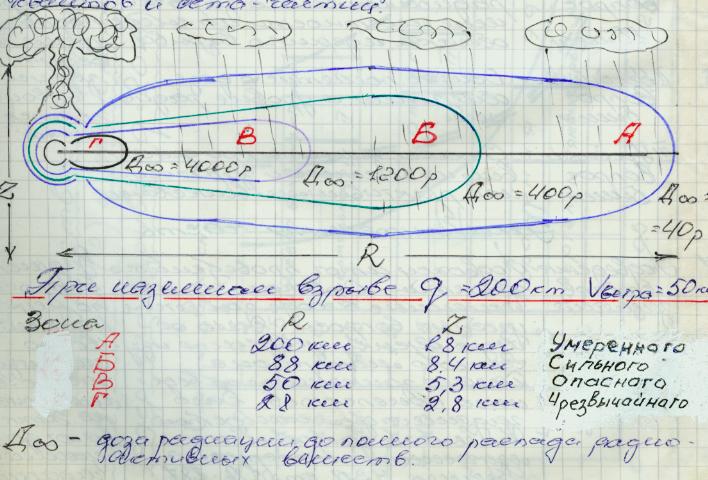 квантов и бета-частиц
Г В Б А
Д∞ = 4000р Д∞ = 1200р Д∞ = 400р Д∞ = =40р
Z
R
При наземном взрыве q = 200кт Vветра = 50к
Зона R Z
А 200 км 18 км Умеренного
Б 88 км 8,4 км Сильного
В 50 км 5,3 км Опасного
Г 28 км 2,8 км Чрезвычайнаго
Д∞ - доза радиации до полного распада радио-
активных веществ.